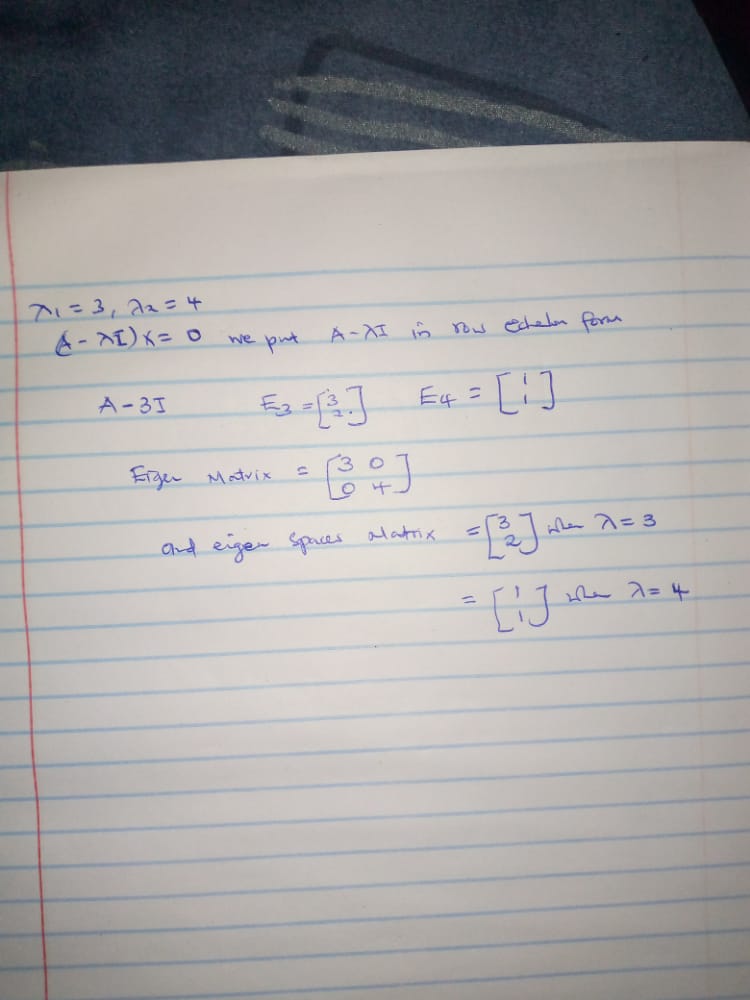 λ1 = 3, λ2 = 4
(A - λI)X = 0 we put A-λI in row echelon form
A-3I E3 = [3 2] E4 = [1 1]
Eigen Matrix = [3 0 0 4]
and eigen spaces Matrix = [3 2] when λ = 3
= [1 1] when λ = 4